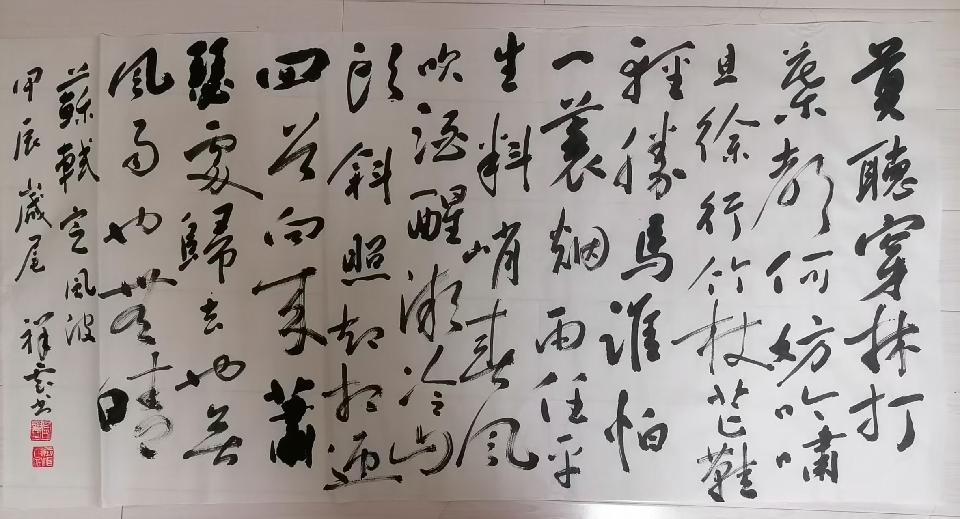 莫聽穿林打
葉聲何妨吟嘯
且徐行竹杖芒鞋
輕勝馬誰怕
一蓑烟雨任平
生料峭春風
吹酒醒微冷山
頭斜照却相迎
回首向來蕭
瑟處歸去也無
風雨也無晴
蘇軾定風波
甲辰歲尾 祥雲書